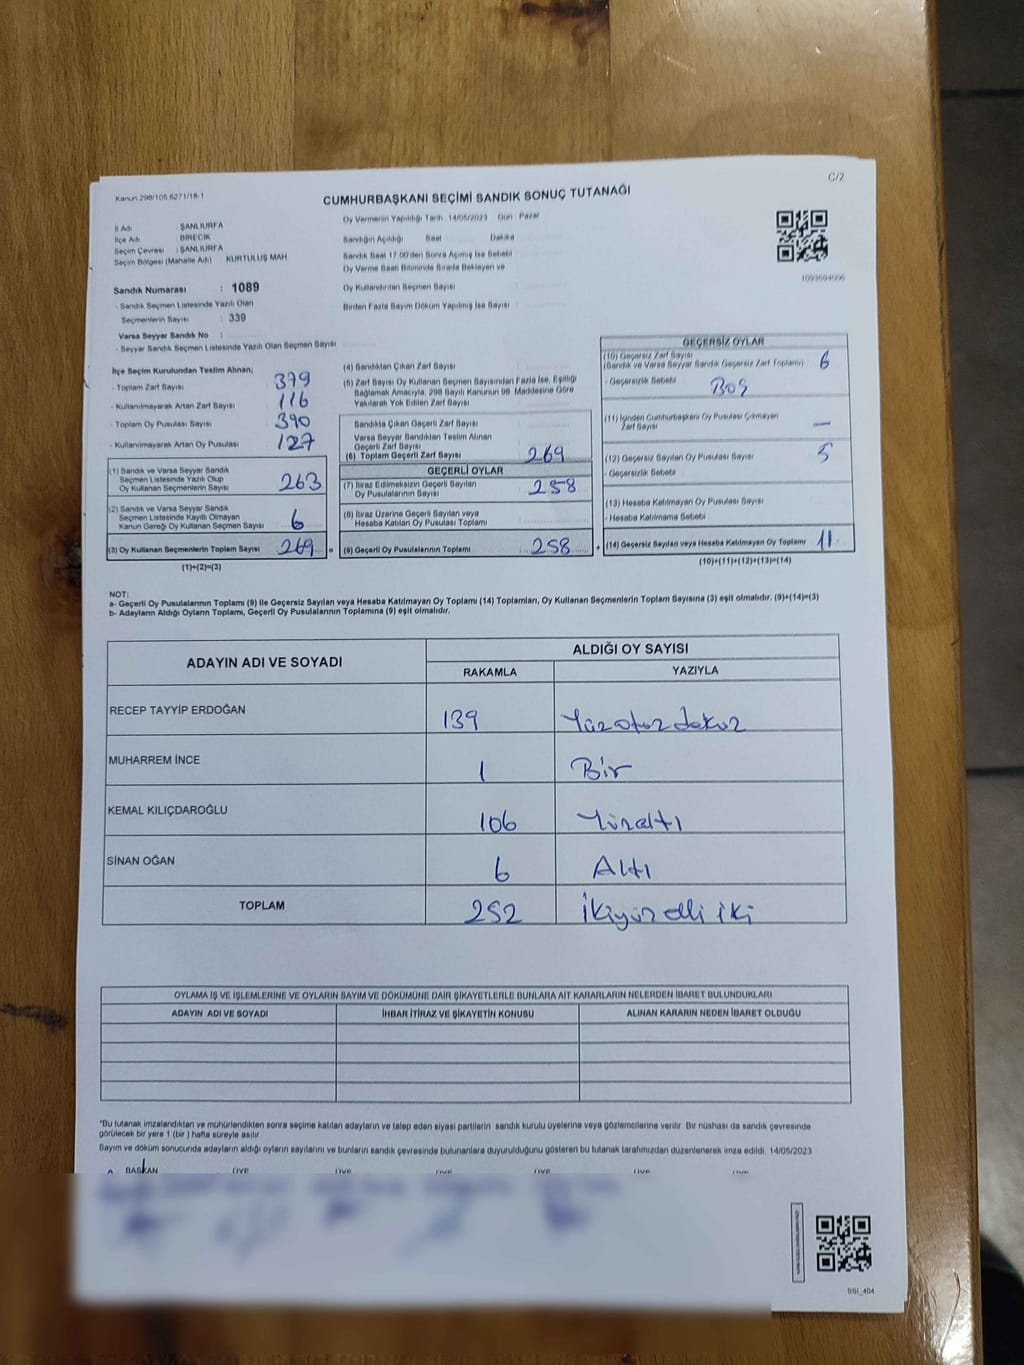 C/2
Kanun 298/105.6271/18-1
CUMHURBAŞKANI SEÇİMİ SANDIK SONUÇ TUTANAĞI
İl Adı : ŞANLIURFA
İlçe Adı : BİRECİK
Seçim Çevresi : ŞANLIURFA
Seçim Bölgesi (Mahalle Adı) : KURTULUŞ MAH
Sandık Numarası : 1089
- Sandık Seçmen Listesinde Yazılı Olan
Seçmenlerin Sayısı : 339
Varsa Seyyar Sandık No :
- Seyyar Sandık Seçmen Listesinde Yazılı Olan Seçmen Sayısı
Oy Vermenin Yapıldığı Tarih : 14/05/2023 Gün : Pazar
Sandığın Açıldığı Saat Dakika
Sandık Saat 17:00'den Sonra Açılmış İse Sebebi
Oy Verme Saati Bitiminde Sırada Bekleyen ve
Oy Kullandırılan Seçmen Sayısı :
Birden Fazla Sayım Döküm Yapılmış İse Sayısı :
İlçe Seçim Kurulundan Teslim Alınan;
- Toplam Zarf Sayısı : 379
- Kullanılmayarak Artan Zarf Sayısı : 116
- Toplam Oy Pusulası Sayısı : 390
- Kullanılmayarak Artan Oy Pusulası : 127
(1) Sandık ve Varsa Seyyar Sandık
Seçmen Listesinde Yazılı Olup
Oy Kullanan Seçmenlerin Sayısı 263
(2) Sandık ve Varsa Seyyar Sandık
Seçmen Listesinde Kayıtlı Olmayan
Kanun Gereği Oy Kullanan Seçmen Sayısı 6
(3) Oy Kullanan Seçmenlerin Toplam Sayısı 269 =
(1)+(2)=(3)
(4) Sandıktan Çıkan Zarf Sayısı
(5) Zarf Sayısı Oy Kullanan Seçmen Sayısından Fazla İse, Eşitliği
Sağlamak Amacıyla, 298 Sayılı Kanunun 98. Maddesine Göre
Yakılarak Yok Edilen Zarf Sayısı
Sandıkta Çıkan Geçerli Zarf Sayısı
Varsa Seyyar Sandıktan Teslim Alınan
Geçerli Zarf Sayısı
(6) Toplam Geçerli Zarf Sayısı 269
GEÇERLİ OYLAR
(7) İtiraz Edilmeksizin Geçerli Sayılan
Oy Pusulalarının Sayısı 258
(8) İtiraz Üzerine Geçerli Sayılan veya
Hesaba Katılan Oy Pusulası Toplamı
(9) Geçerli Oy Pusulalarının Toplamı 258 +
GEÇERSİZ OYLAR
(10) Geçersiz Zarf Sayısı
(Sandık ve Varsa Seyyar Sandık Geçersiz Zarf Toplamı) 6
- Geçersizlik Sebebi Boş
(11) İçinden Cumhurbaşkanı Oy Pusulası Çıkmayan
Zarf Sayısı —
(12) Geçersiz Sayılan Oy Pusulası Sayısı 5
- Geçersizlik Sebebi
(13) Hesaba Katılmayan Oy Pusulası Sayısı
- Hesaba Katılmama Sebebi
(14) Geçersiz Sayılan veya Hesaba Katılmayan Oy Toplamı 11
(10)+(11)+(12)+(13)=(14)
NOT:
a- Geçerli Oy Pusulalarının Toplamı (9) ile Geçersiz Sayılan veya Hesaba Katılmayan Oy Toplamı (14) Toplamları, Oy Kullanan Seçmenlerin Toplam Sayısına (3) eşit olmalıdır. (9)+(14)=(3)
b- Adayların Aldığı Oyların Toplamı, Geçerli Oy Pusulalarının Toplamına (9) eşit olmalıdır.
ADAYIN ADI VE SOYADI ALDIĞI OY SAYISI
RAKAMLA YAZIYLA
RECEP TAYYİP ERDOĞAN 139 Yüzotuzdokuz
MUHARREM İNCE 1 Bir
KEMAL KILIÇDAROĞLU 106 Yüzaltı
SİNAN OĞAN 6 Altı
TOPLAM 252 İkiyüzelli iki
OYLAMA İŞ VE İŞLEMLERİNE VE OYLARIN SAYIM VE DÖKÜMÜNE DAİR ŞİKAYETLERLE BUNLARA AİT KARARLARIN NELERDEN İBARET BULUNDUKLARI
ADAYIN ADI VE SOYADI İHBAR İTİRAZ VE ŞİKAYETİN KONUSU ALINAN KARARIN NEDEN İBARET OLDUĞU
*Bu tutanak imzalandıktan ve mühürlendikten sonra seçime katılan adayların ve talep eden siyasi partilerin sandık kurulu üyelerine veya gözlemcilerine verilir. Bir nüshası da sandık çevresinde
görülecek bir yere 1 (bir) hafta süreyle asılır.
Sayım ve döküm sonucunda adayların aldığı oyların sayılarını ve bunların sandık çevresinde bulunanlara duyurulduğunu gösteren bu tutanak tarafımızdan düzenlenerek imza edildi. 14/05/2023
BAŞKAN ÜYE ÜYE ÜYE ÜYE ÜYE ÜYE
SSI_404